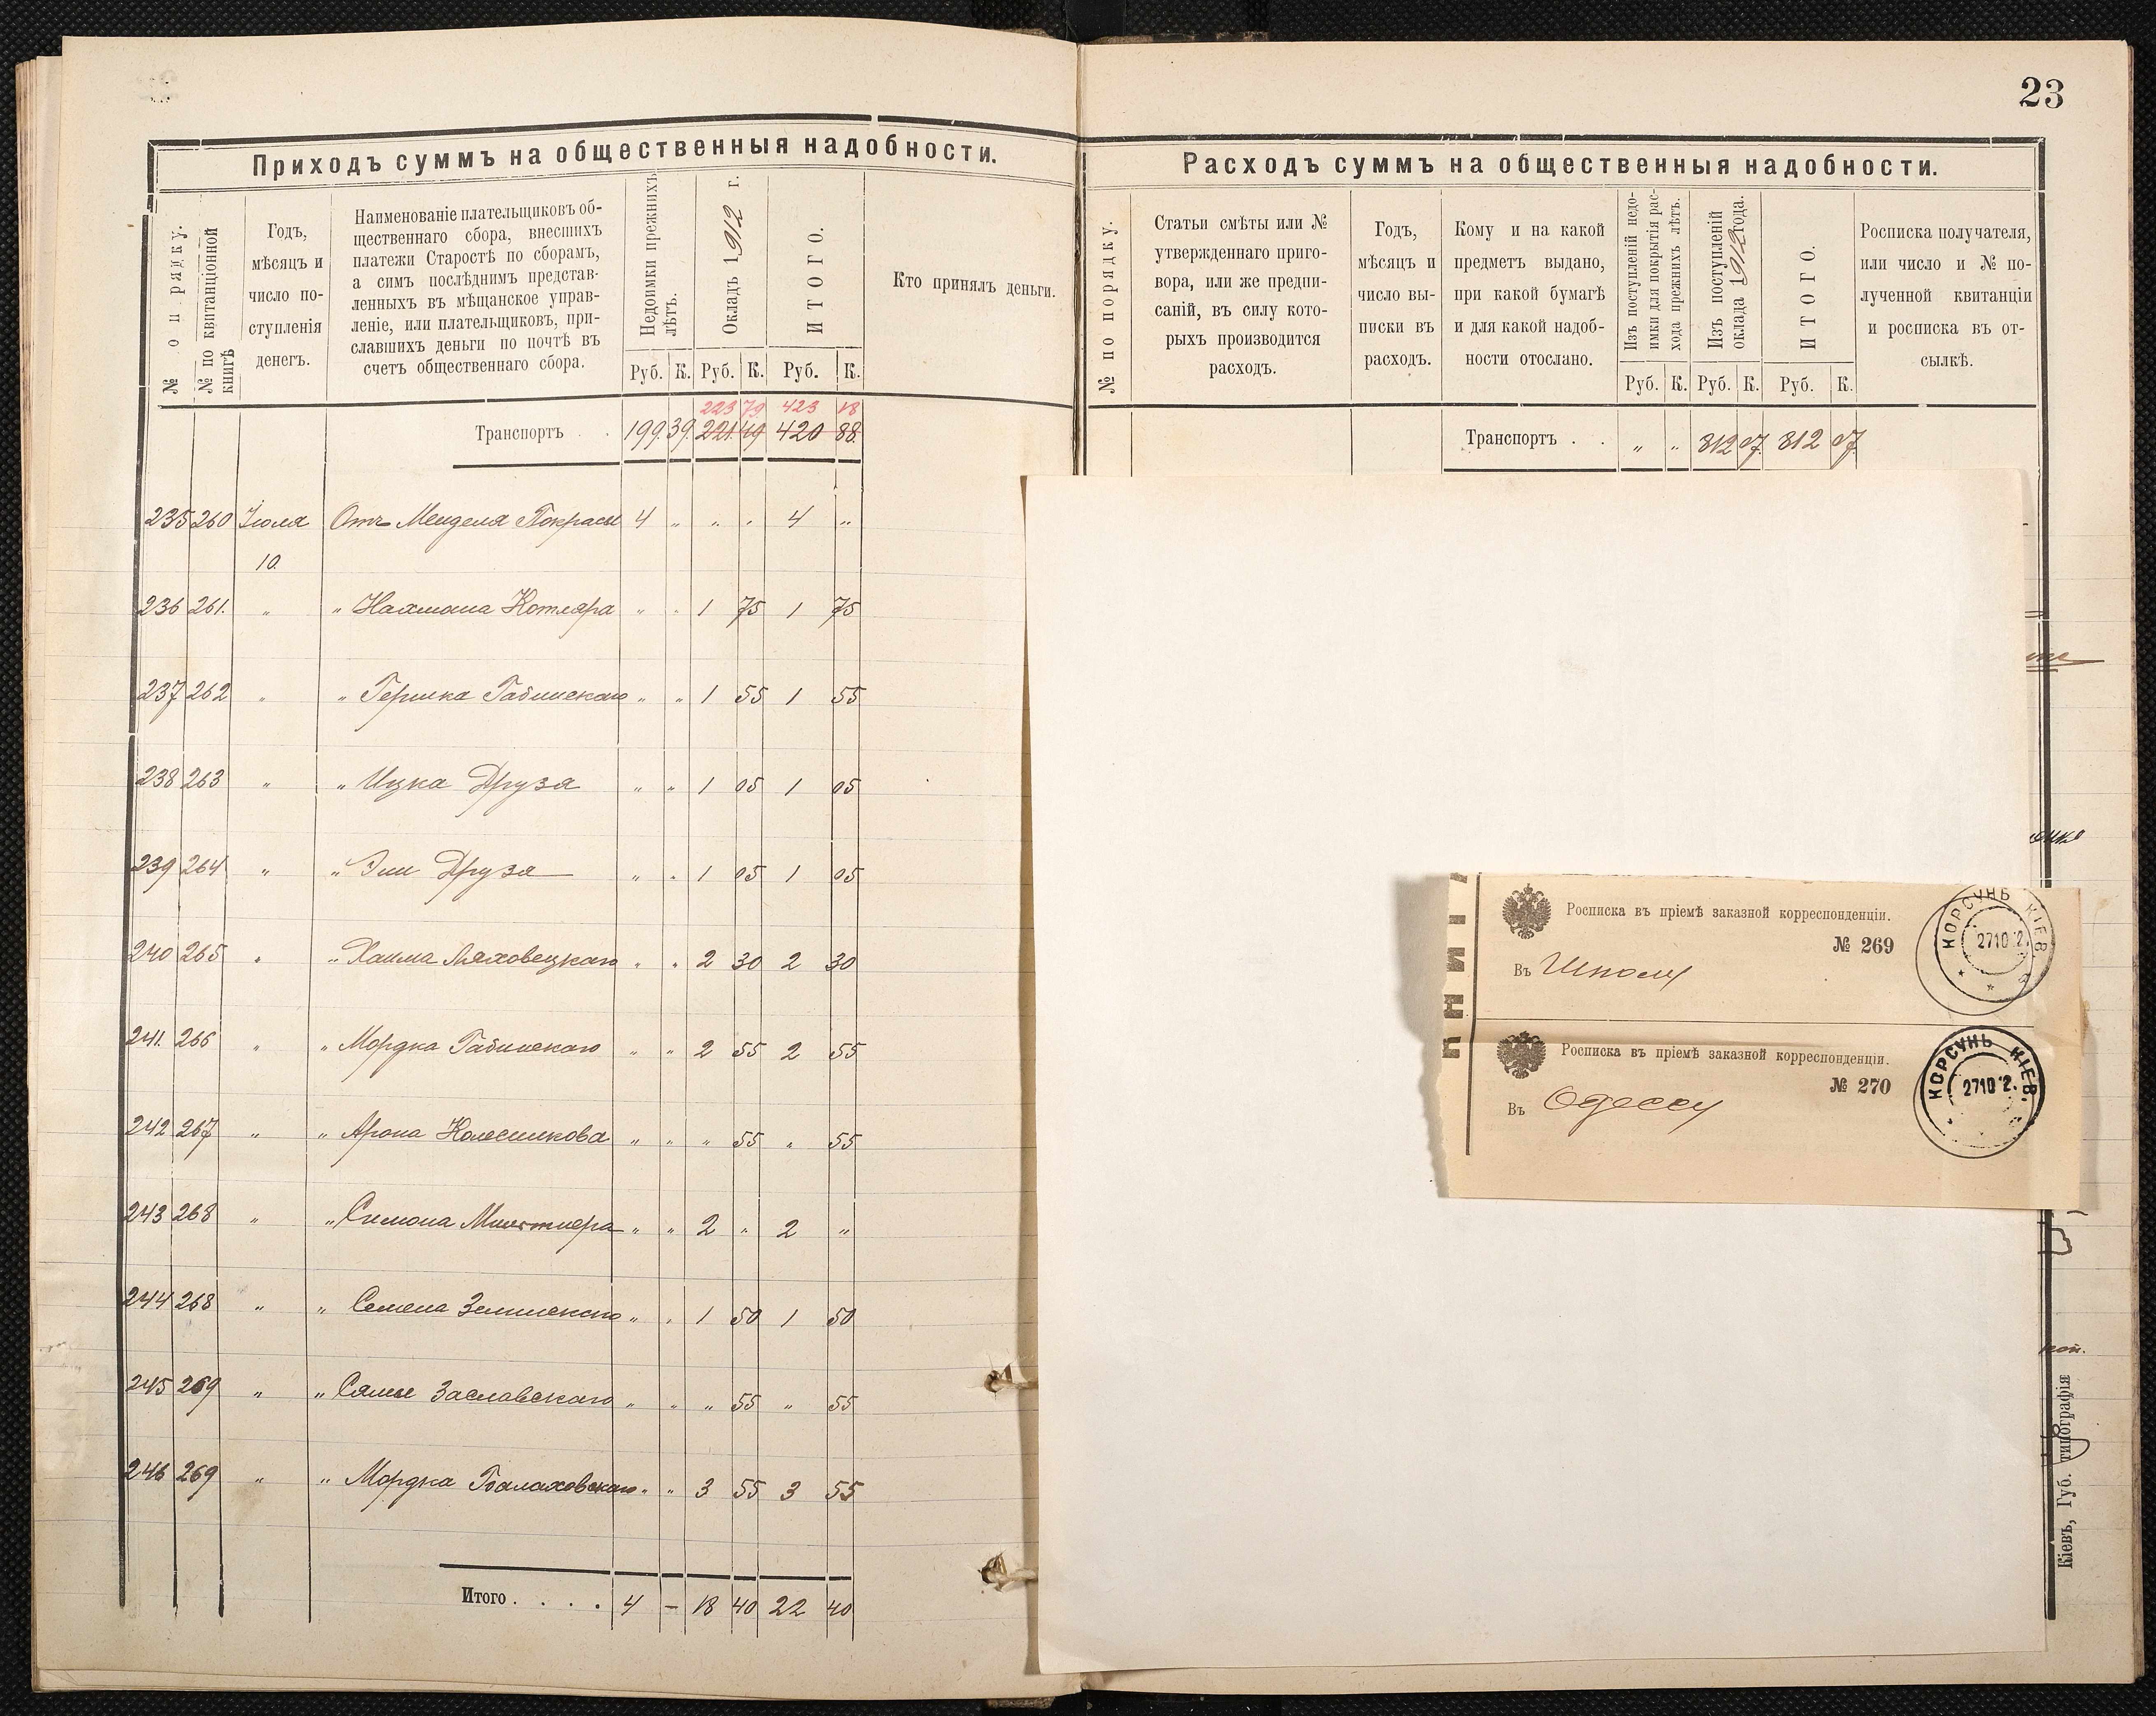 23
Приходъ суммъ на общественныя надобности.
№ по рядку.
№ по квитанціонной книгѣ
Годъ,
мѣсяцъ и
число по-
ступленія
денегъ.
Наименованіе плательщиковъ об-
щественнаго сбора, внесшихъ
платежи Старостѣ по сборамъ,
а симъ послѣднимъ представ-
ленныхъ въ мѣщанское управ-
леніе, или плательщиковъ, при-
славшихъ деньги по почтѣ въ
счетъ общественнаго сбора.
Недоимки прежнихъ
лѣтъ.
Окладъ 1912 г.
ИТОГО.
Кто принялъ деньги.
Руб. К. Руб. К. Руб. К.
223 79 423 18
Транспортъ . . 199 39 221 49 420 88
235 260 Іюля Отъ Менделя Покрасы 4 " " " 4 "
10.
236 261. " " Нахмана Котляра " " 1 75 1 75
237 262 " " Гершка Габинскаго " " 1 55 1 55
238 263 " " Ицка Друзя " " 1 05 1 05
239 264 " " Эли Друзя " " 1 05 1 05
240 265 " " Хаима Ляховецкаго " " 2 30 2 30
241. 266 " " Мордка Габинскаго " " 2 55 2 55
242 267 " " Арона Колесникова " " " 55 " 55
243 268 " " Симона " " 2 " 2 "
244 268 " " Семена " " 1 50 1 50
245 269 " " Сямы Заславскаго " " " 55 " 55
246 269 " " Мордка Балаховскаго " " 3 55 3 55
Итого . . . . 4 – 18 40 22 40
Расходъ суммъ на общественныя надобности.
№ по порядку.
Статьи смѣты или №
утвержденнаго приго-
вора, или же предпи-
саній, въ силу кото-
рыхъ производится
расходъ.
Годъ,
мѣсяцъ и
число вы-
писки въ
расходъ.
Кому и на какой
предметъ выдано,
при какой бумагѣ
и для какой надоб-
ности отослано.
Изъ поступленій недо-
имки для покрытія рас-
хода прежнихъ лѣтъ.
Изъ поступленій
оклада 1912 года.
ИТОГО.
Росписка получателя,
или число и № по-
лученной квитанціи
и росписка въ от-
сылкѣ.
Руб. К. Руб. К. Руб. К.
Транспортъ . . " " 312 07 312 07
Росписка въ пріемѣ заказной корреспонденціи.
№ 269
Въ Шполу
КОРСУНЬ КІЕВ.
271012
Росписка въ пріемѣ заказной корреспонденціи.
№ 270
Въ Одессу
КОРСУНЬ КІЕВ.
271012.
коп.
Кіевъ, Губ. типографія